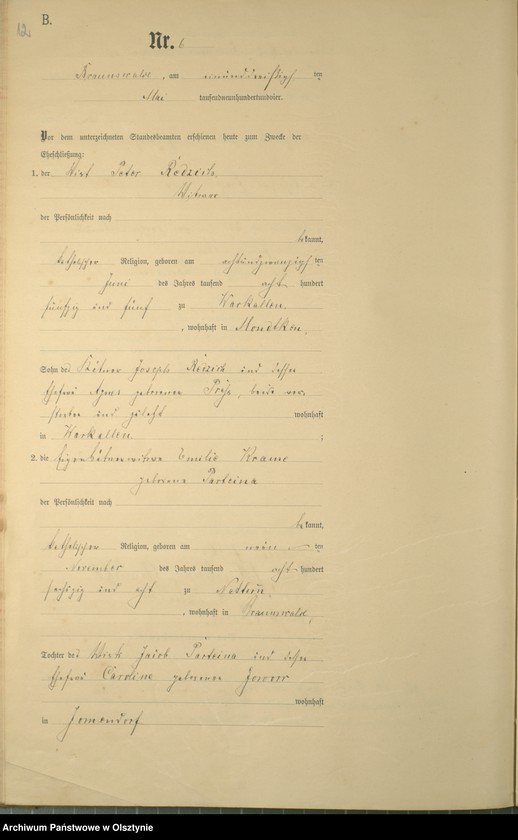 12.
B.
Nr. 6
Braunswalde, am einunddreißigsten
Mai tausendneunhundertundvier.
Vor dem unterzeichneten Standesbeamten erschienen heute zum Zwecke der
Eheschließung:
1. der Wirt Peter Redzich,
Witwer
der Persönlichkeit nach
bekannt,
katholischer Religion, geboren am achtundzwanzigsten
Juni des Jahres tausend acht hundert
fünfzig und fünf zu Warkallen
, wohnhaft in Mondtken,
Sohn des Kätner Joseph Redzich und dessen
Ehefrau Agnes geborene, beide ver-
storben und zuletzt wohnhaft
in Warkallen ;
2. die Eigenkätnerwitwe Emilie
geborene Parteina
der Persönlichkeit nach
bekannt,
katholischer Religion, geboren am neunten
November des Jahres tausend acht hundert
sechszig und acht zu
, wohnhaft in Braunswalde,
Tochter des Wirt Jacob Parteina und dessen
Ehefrau Caroline geborene
wohnhaft
in Jomendorf
Archiwum Państwowe w Olsztynie